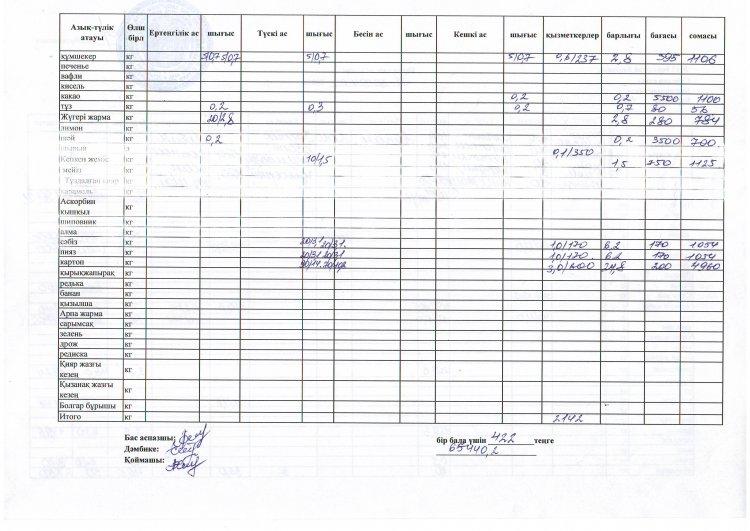 Азық-түлік атауы Өлш бірл Ертеңгілік ас шығыс Түскі ас шығыс Бесін ас шығыс Кешкі ас шығыс қызметкерлер барлығы бағасы сомасы
құмшекер кг 5/0,7 5/0,7 5/0,7 5/0,7 0,6/237 2,8 395 1106
печенье кг
вафли кг
кисель кг
какао кг 0,2 0,2 5500 1100
тұз кг 0,2 0,3 0,2 0,7 80 56
Жүгері жарма кг 20/2,8 2,8 280 784
лимон кг
шай кг 0,2 0,2 3500 700
0,1/350
Кепкен жеміс кг 10/1,5
мейіз кг 1,5 750 1125
Тұздалған қияр кг
карамель кг
Аскорбин қышқыл кг
шиповник кг
алма кг
сәбіз кг 20/3,1 20/3,1 1,0/170 6,2 170 1054
пияз кг 20/3,1 20/3,1 1,0/170 6,2 170 1054
картоп кг 3,0/600 24,8 200 4960
қырыққабырақ кг
редька кг
банан кг
қызылша кг
Арпа жарма кг
сарымсақ кг
зелень кг
дрож кг
редиска кг
Қияр жазғы кезең кг
Қызанақ жазғы кезең кг
Болгар бұрышы кг
Итого кг 2142
Бас аспазшы:
Дәмбике:
Қоймашы:
бір бала үшін 422 теңге
65440,2